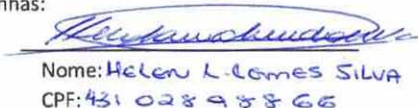 nhas:
Nome: Helen L. Lemes Silva
CPF: 431 028 988 66